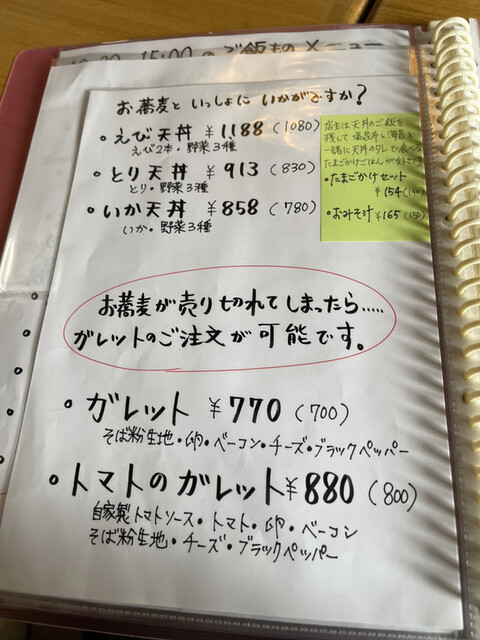 15:00のご飯ものメニュー
お蕎麦と いっしょに いかがですか?
・えび天丼 ¥1188 (1080)
えび2本・野菜3種
・とり天丼 ¥913 (830)
とり・野菜3種
・いか天丼 ¥858 (780)
いか・野菜3種
店主は天丼のご飯を
残して温泉卵と海苔を
一緒に天丼のタレで食べる
たまごかけごはんが好きです
・たまごかけセット
¥154(140)
・おみそ汁¥165(150)
お蕎麦が売り切れてしまったら.....
ガレットのご注文が可能です。
・ガレット ¥770(700)
そば粉生地・卵・ベーコン・チーズ・ブラックペッパー
・トマトのガレット¥880(800)
自家製トマトソース・トマト・卵・ベーコン
そば粉生地・チーズ・ブラックペッパー